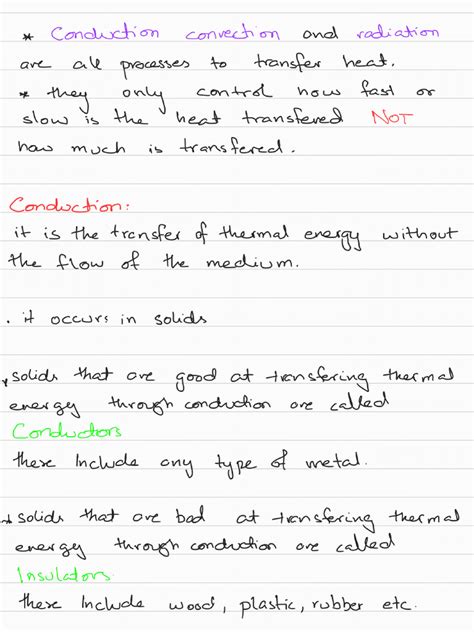 * Conduction convection and radiation
are all processes to transfer heat.
* they only control how fast or
slow is the heat transfered NOT
how much is transfered.
Conduction:
it is the transfer of thermal energy without
the flow of the medium.
. it occurs in solids
* solids that are good at transfering thermal
energy through conduction are called
Conductors
these Include any type of metal.
* solids that are bad at transfering thermal
energy through conduction are called
Insulators
these Include wood, plastic, rubber etc.